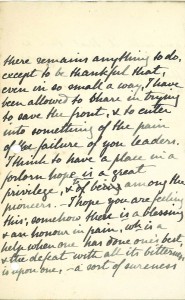 there remains anything to do,
except to be thankful that,
even in so small a way, I have
been allowed to share in trying
to save the front, & to enter
into something of the pain
of the failure of you leaders.
I think to have a place in a
forlorn hope is a great
privilege, & of being among the
pioneers. – I hope you are feeling
this, somehow there is a blessing
& an honour in pain, wh. is a
help when one has done one's best,
& the defeat with all its bitterness
is upon one, – a sort of sureness